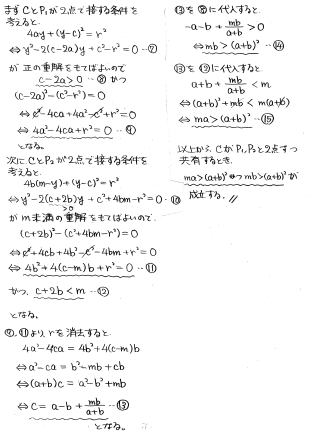 まず CとP₁が2点で接する条件を
考えると
4ay+(y-c)²=r²
⇔ y²-2(c-2a)y+c²-r²=0 …⑦
が 正の重解をもてばよいので
c-2a>0 …⑧ かつ
(c-2a)²-(c²-r²)=0
⇔ c²-4ca+4a²-c²+r²=0
⇔ 4a²-4ca+r²=0 …⑨
となる。
次に CとP₂が2点で接する条件を
考えると
4b(m-y)+(y-c)²=r²
⇔ y²-2(c+2b)y+c²+4bm-r²=0 …⑩
>0
が m未満の重解をもてばよいので、
(c+2b)²-(c²+4bm-r²)=0
⇔ c²+4cb+4b²-c²-4bm+r²=0
⇔ 4b²+4(c-m)b+r²=0 …⑪
かつ、c+2b<m …⑫
となる。
⑨,⑪より、rを消去すると
4a²-4ca=4b²+4(c-m)b
⇔ a²-ca=b²-mb+cb
⇔ (a+b)c=a²-b²+mb
⇔ c=a-b+mb/(a+b) …⑬
となる。
⑬を⑧に代入すると
-a-b+mb/(a+b)>0
⇔ mb>(a+b)² …⑭
⑬を⑫に代入すると
a+b+mb/(a+b)<m
⇔ (a+b)²+mb<m(a+b)
⇔ ma>(a+b)² …⑮
以上から CがP₁,P₂と2点ずつ
共有するとき、
ma>(a+b)² かつ mb>(a+b)² が
成立する。//